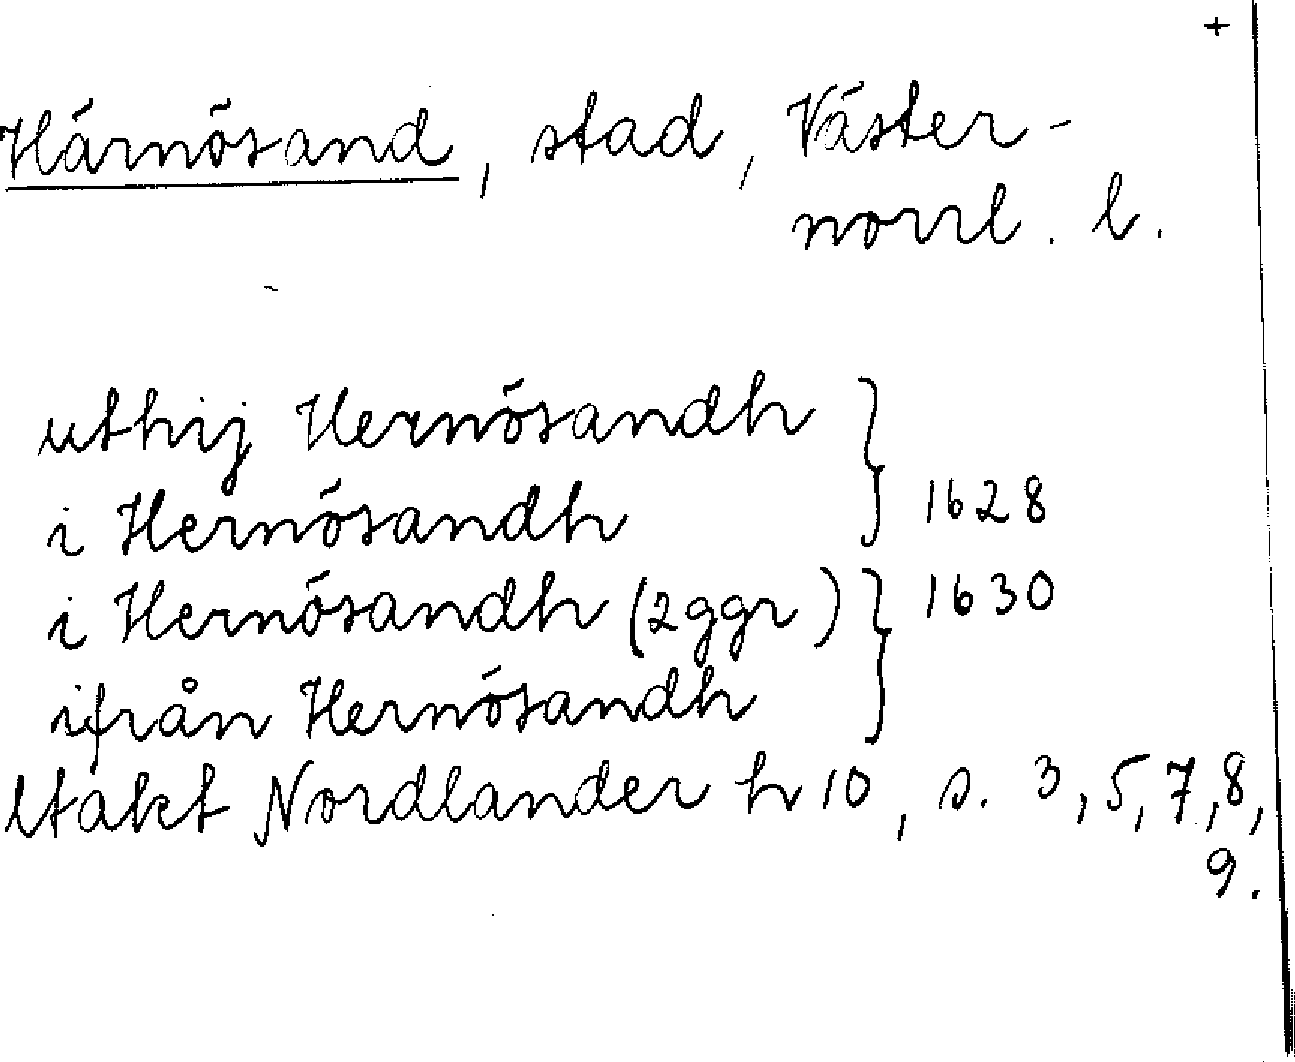 +
Härnösand, stad, Väster-
norrl. l.
uthij Hernösandh
i Hernösandh } 1628
i Hernösandh (2 ggr) } 1630
ifrån Hernösandh
Utdkt Nordlander h 10, s. 3, 5, 7, 8,
9.